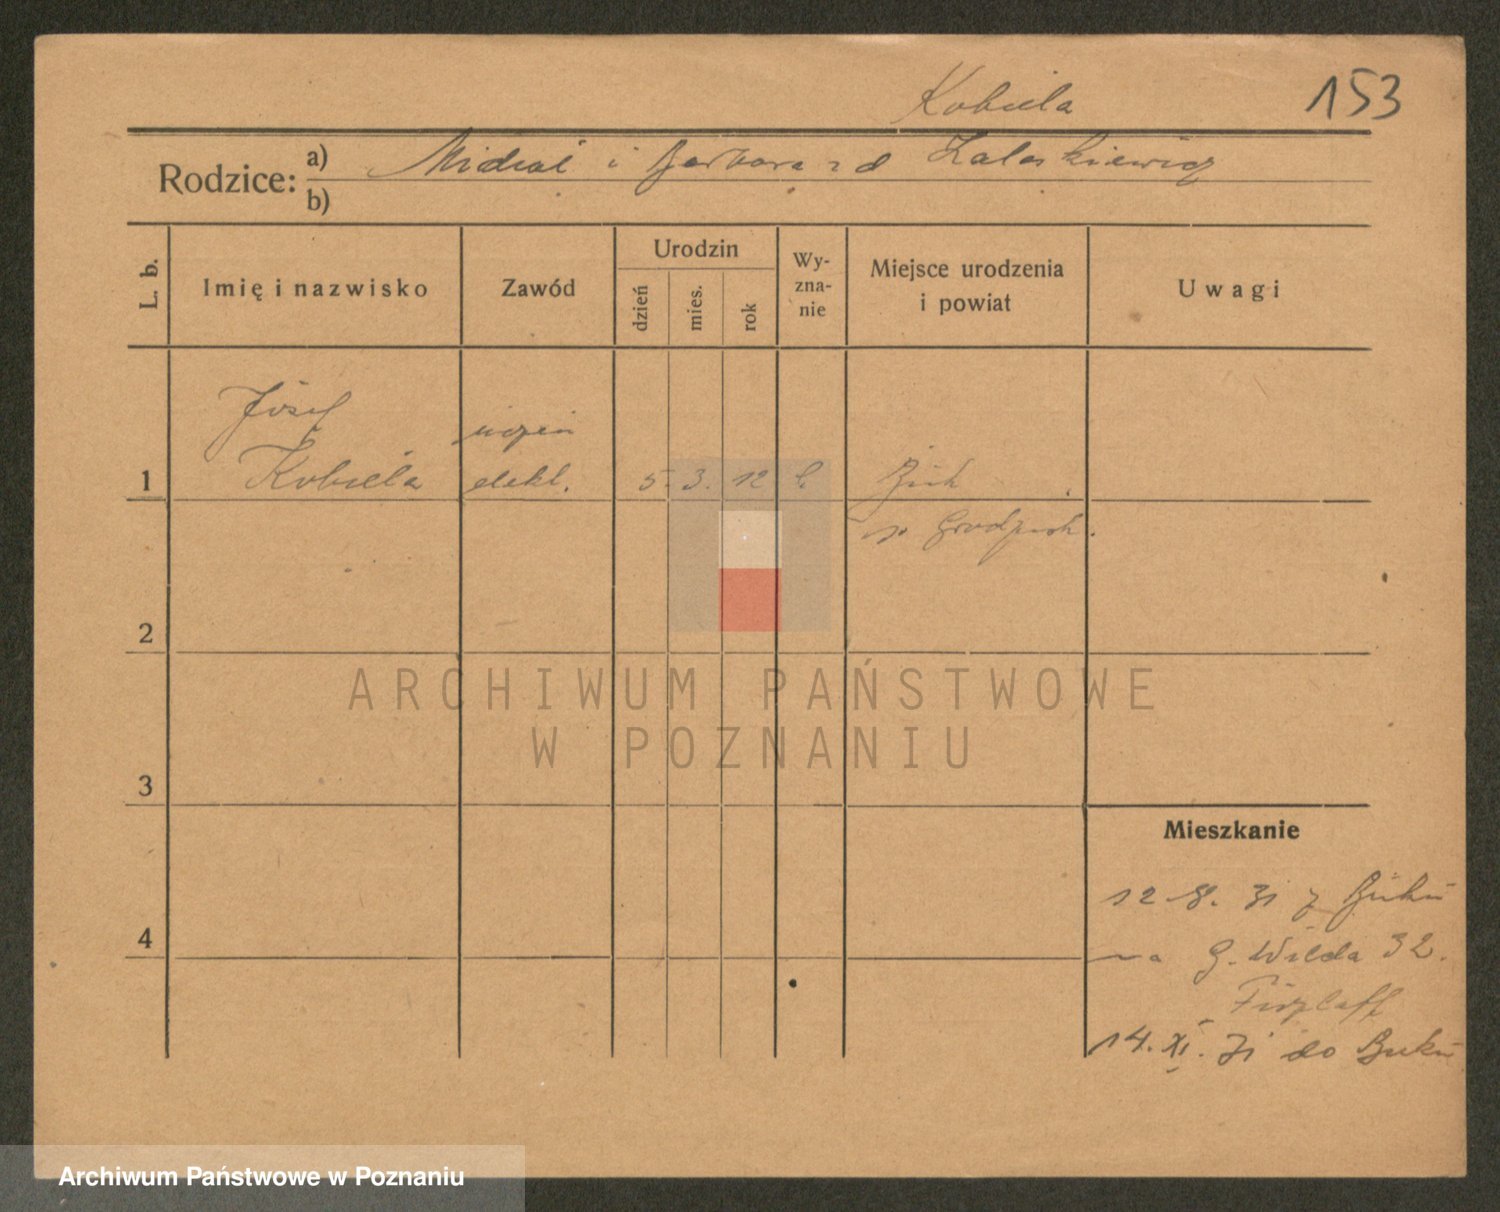 Kobiela
153
Rodzice:
a) Michał i Barbara z d Zalaskiewicz
b)
L. b.
Imię i nazwisko
Zawód
Urodzin
dzień
mies.
rok
Wy-
zna-
nie
Miejsce urodzenia
i powiat
Uwagi
Józef
uczeń
1 Kobiela elekt. 5. 3. 12 k. Buk
p. Grodzisk.
2
3
4
ARCHIWUM PAŃSTWOWE
W POZNANIU
Mieszkanie
12.8.31 z Buku
na G. Wilda 32.
14.XI.31 do Buku
Archiwum Państwowe w Poznaniu